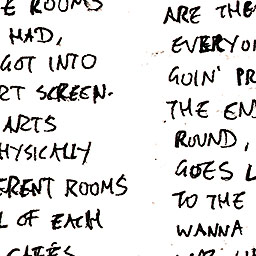 E ROOMS
HAD,
GOT INTO
RT SCREEN.
ARTS
HYSICALLY
ERENT ROOMS
L OF EACH
CAFÉS
ARE THE
EVERYO
GOIN' PR
THE EN
ROUND,
GOES L
TO THE
WANNA